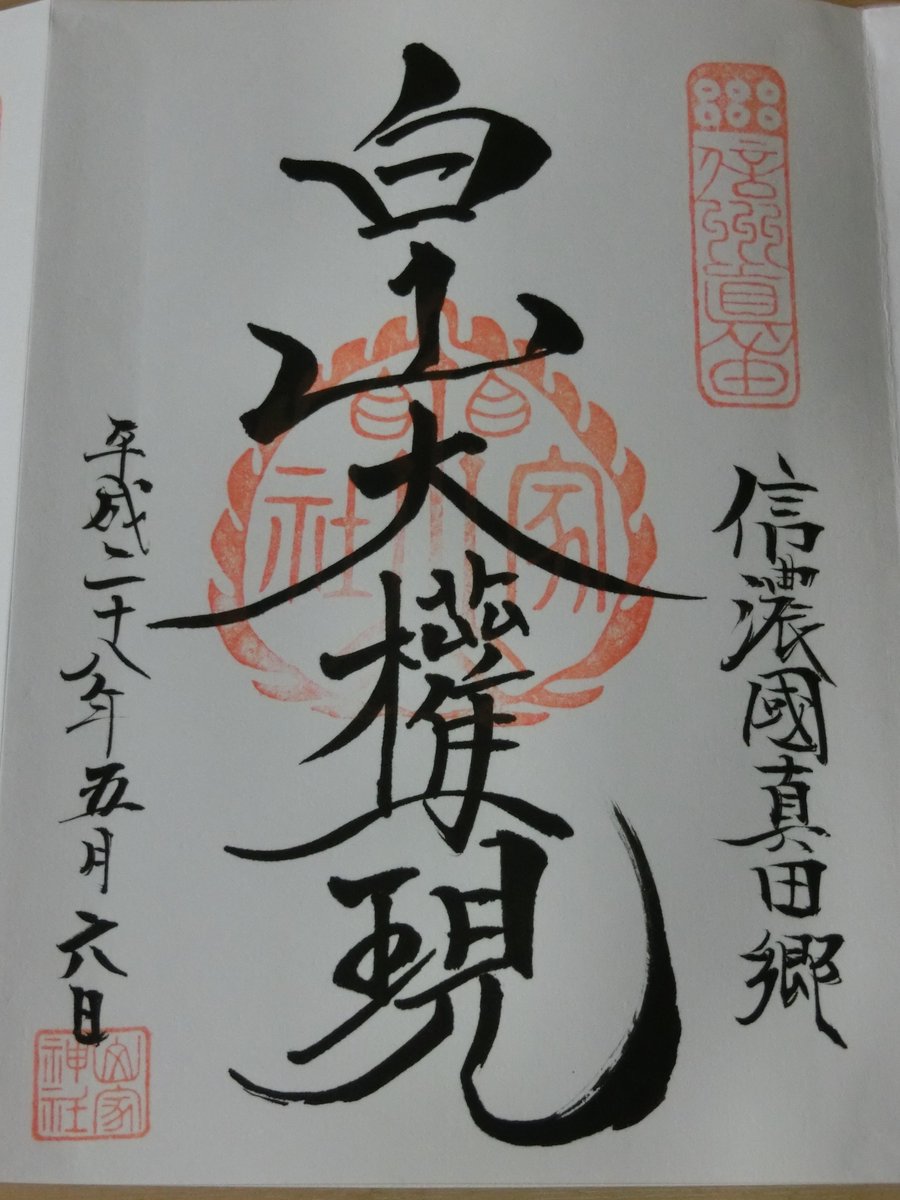 信州真田
信濃國真田郷
白山大權現
山家
神社
平成二十八年五月六日
山家
神社